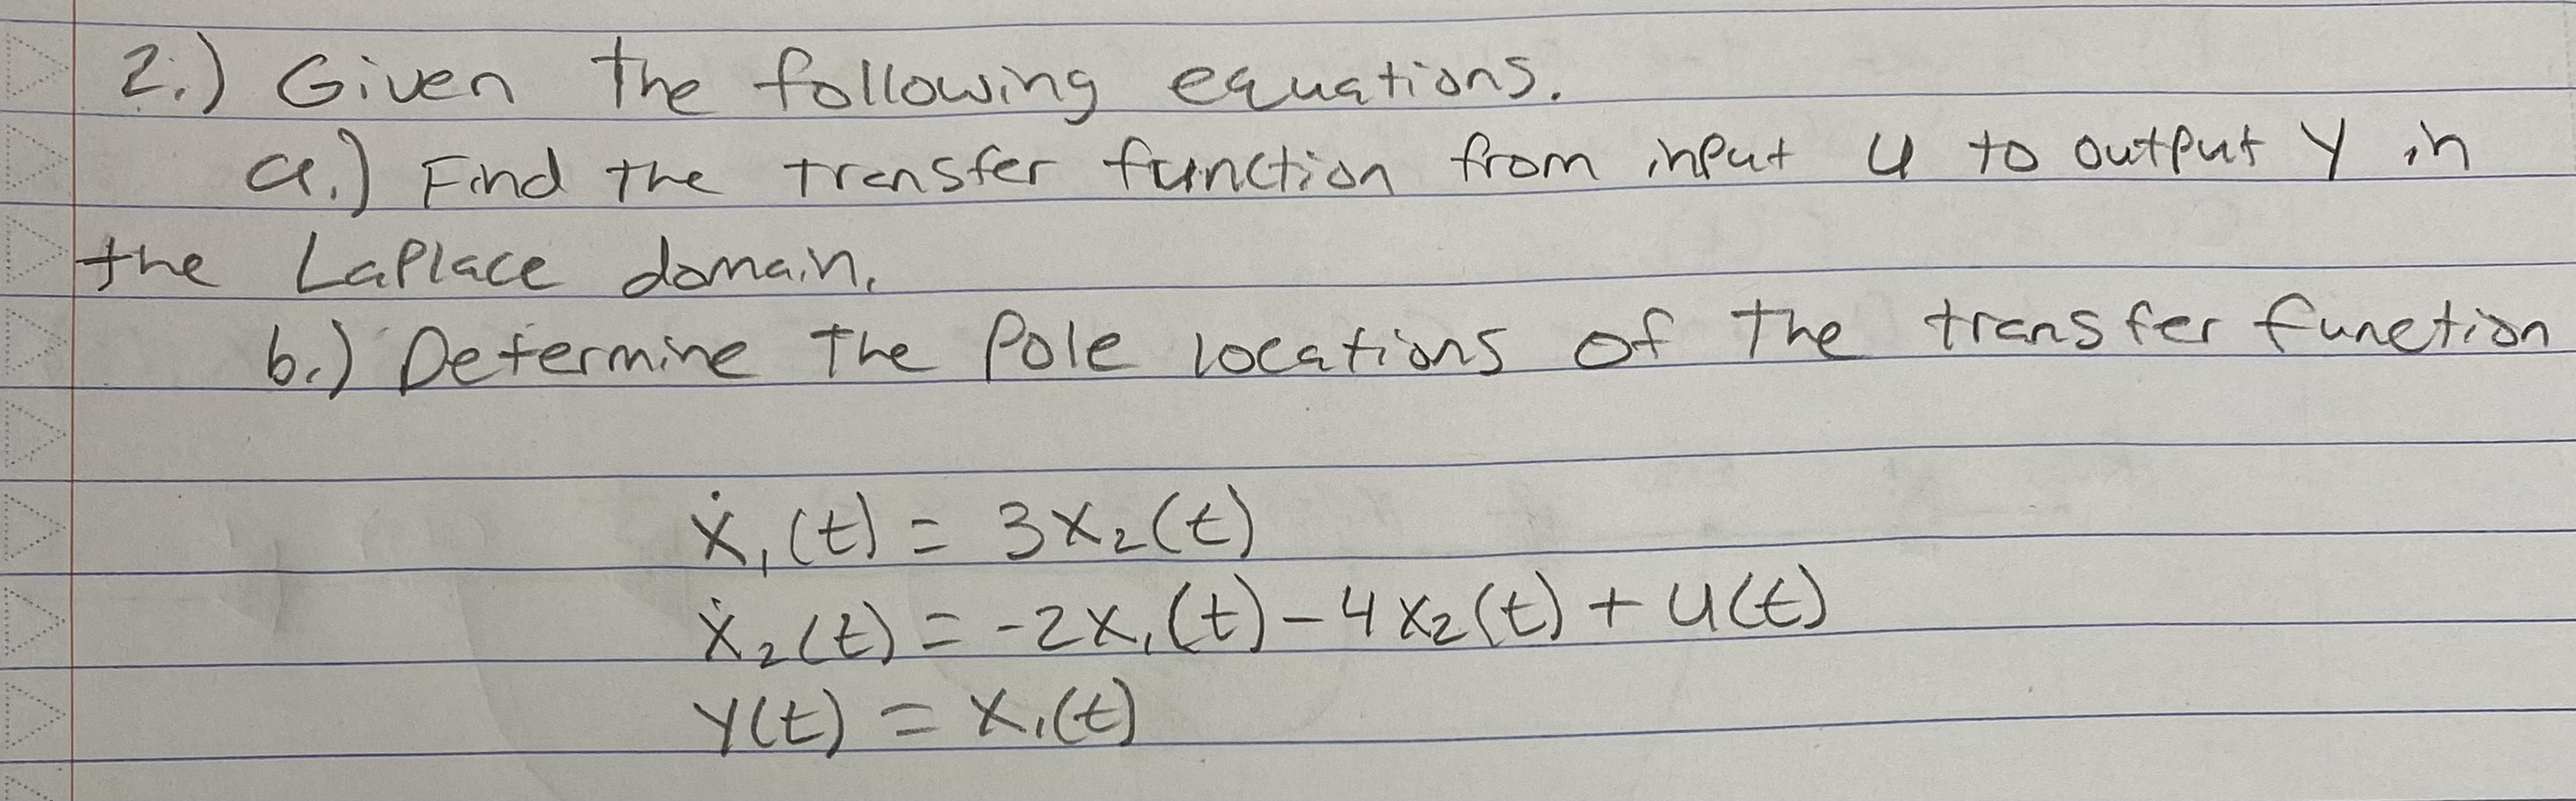 2.) Given the following equations.
a.) Find the transfer function from input u to output y in
the Laplace domain.
b.) Determine the pole locations of the transfer function
ẋ₁(t) = 3x₂(t)
ẋ₂(t) = -2x₁(t) - 4x₂(t) + u(t)
y(t) = x₁(t)